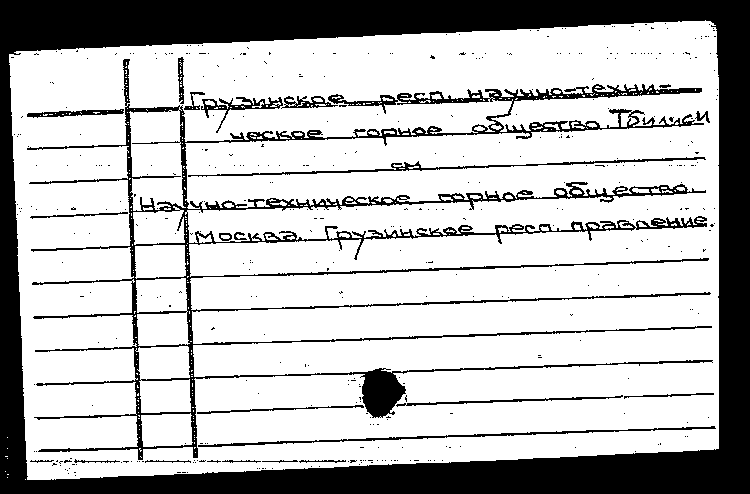 Грузинское респ. научно-техни-
ческое горное общество. Тбилиси
см
Научно-техническое горное общество.
Москва. Грузинское респ. правление.